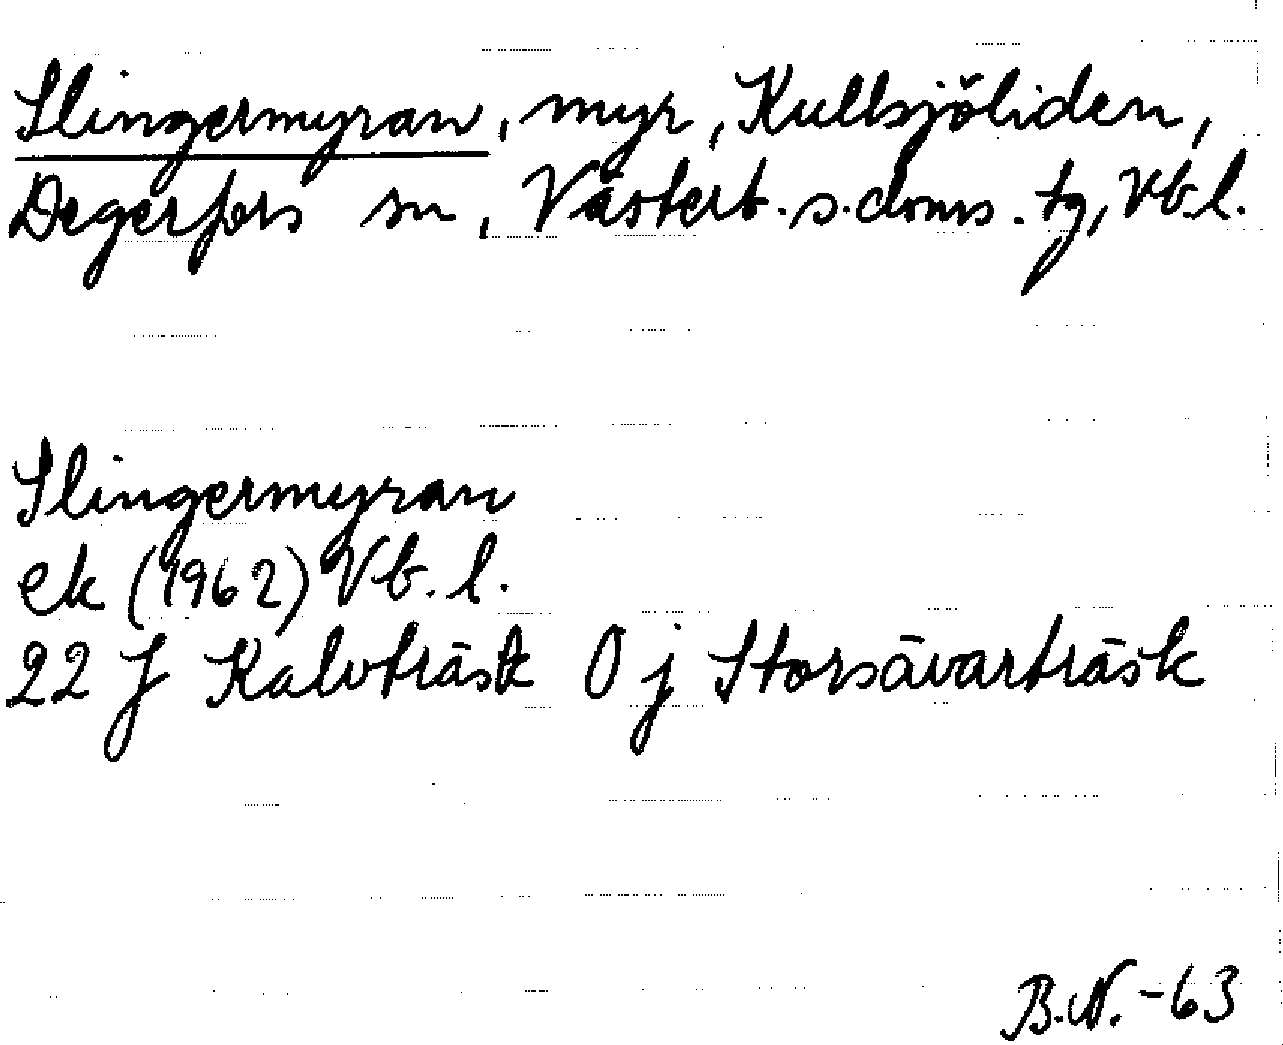 Slingermyran, myr, Kullsjöliden,
Degerfors sn, Västerb. s. doms. tg, Vb.l.
Slingermyran
ek (1962) Vb. l.
22 J Kalvträsk 0 j Storsävarträsk
B.N. -63